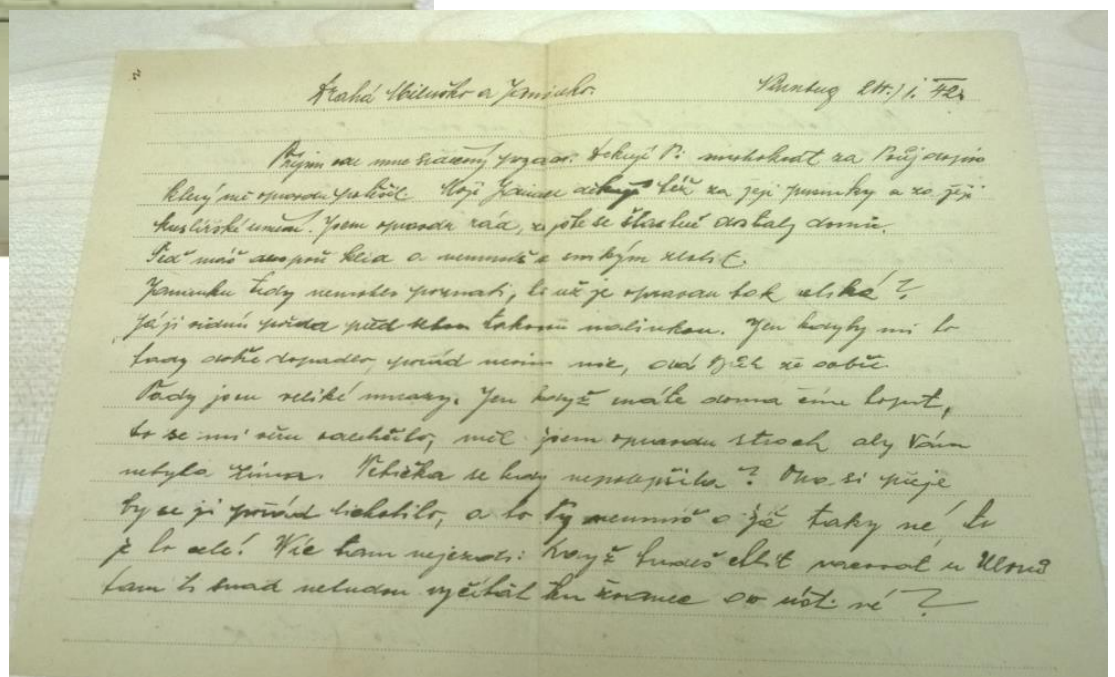 Drahá Miluško a Janinko. 24./1. 42.
Přijmi ode mne srdečný pozdrav. Děkuji Ti mnohokrát za Tvůj dopis
který mě opravdu potěšil. Moji Janince děkuji též za její pusinky a za její
umění. Jsem opravdu rád, že jste se šťastně dostaly domů.
Teď máš aspoň klid a nemusíš se s nikým zlobit.
Janinku tedy nemohou poznati, to už je opravdu tak velká?
Já ji vidím pořád před sebou takovou malinkou. Jen kdyby mi to
tady dobře dopadlo, pořád nevím nic, ale
Tady jsou veliké mrazy. Jen když máte doma čím topit,
to se mi ulehčilo, měl jsem opravdu strach aby Vám
nebyla zima. se tedy nepolepšila? Ona si přeje
by se jí pořád lichotilo, a to Ty neumíš a já taky ne, to
je to celé! Víc tam nejezdi. Když budeš chtít u
tam ti snad nebudou vyčítat do úst. ne?